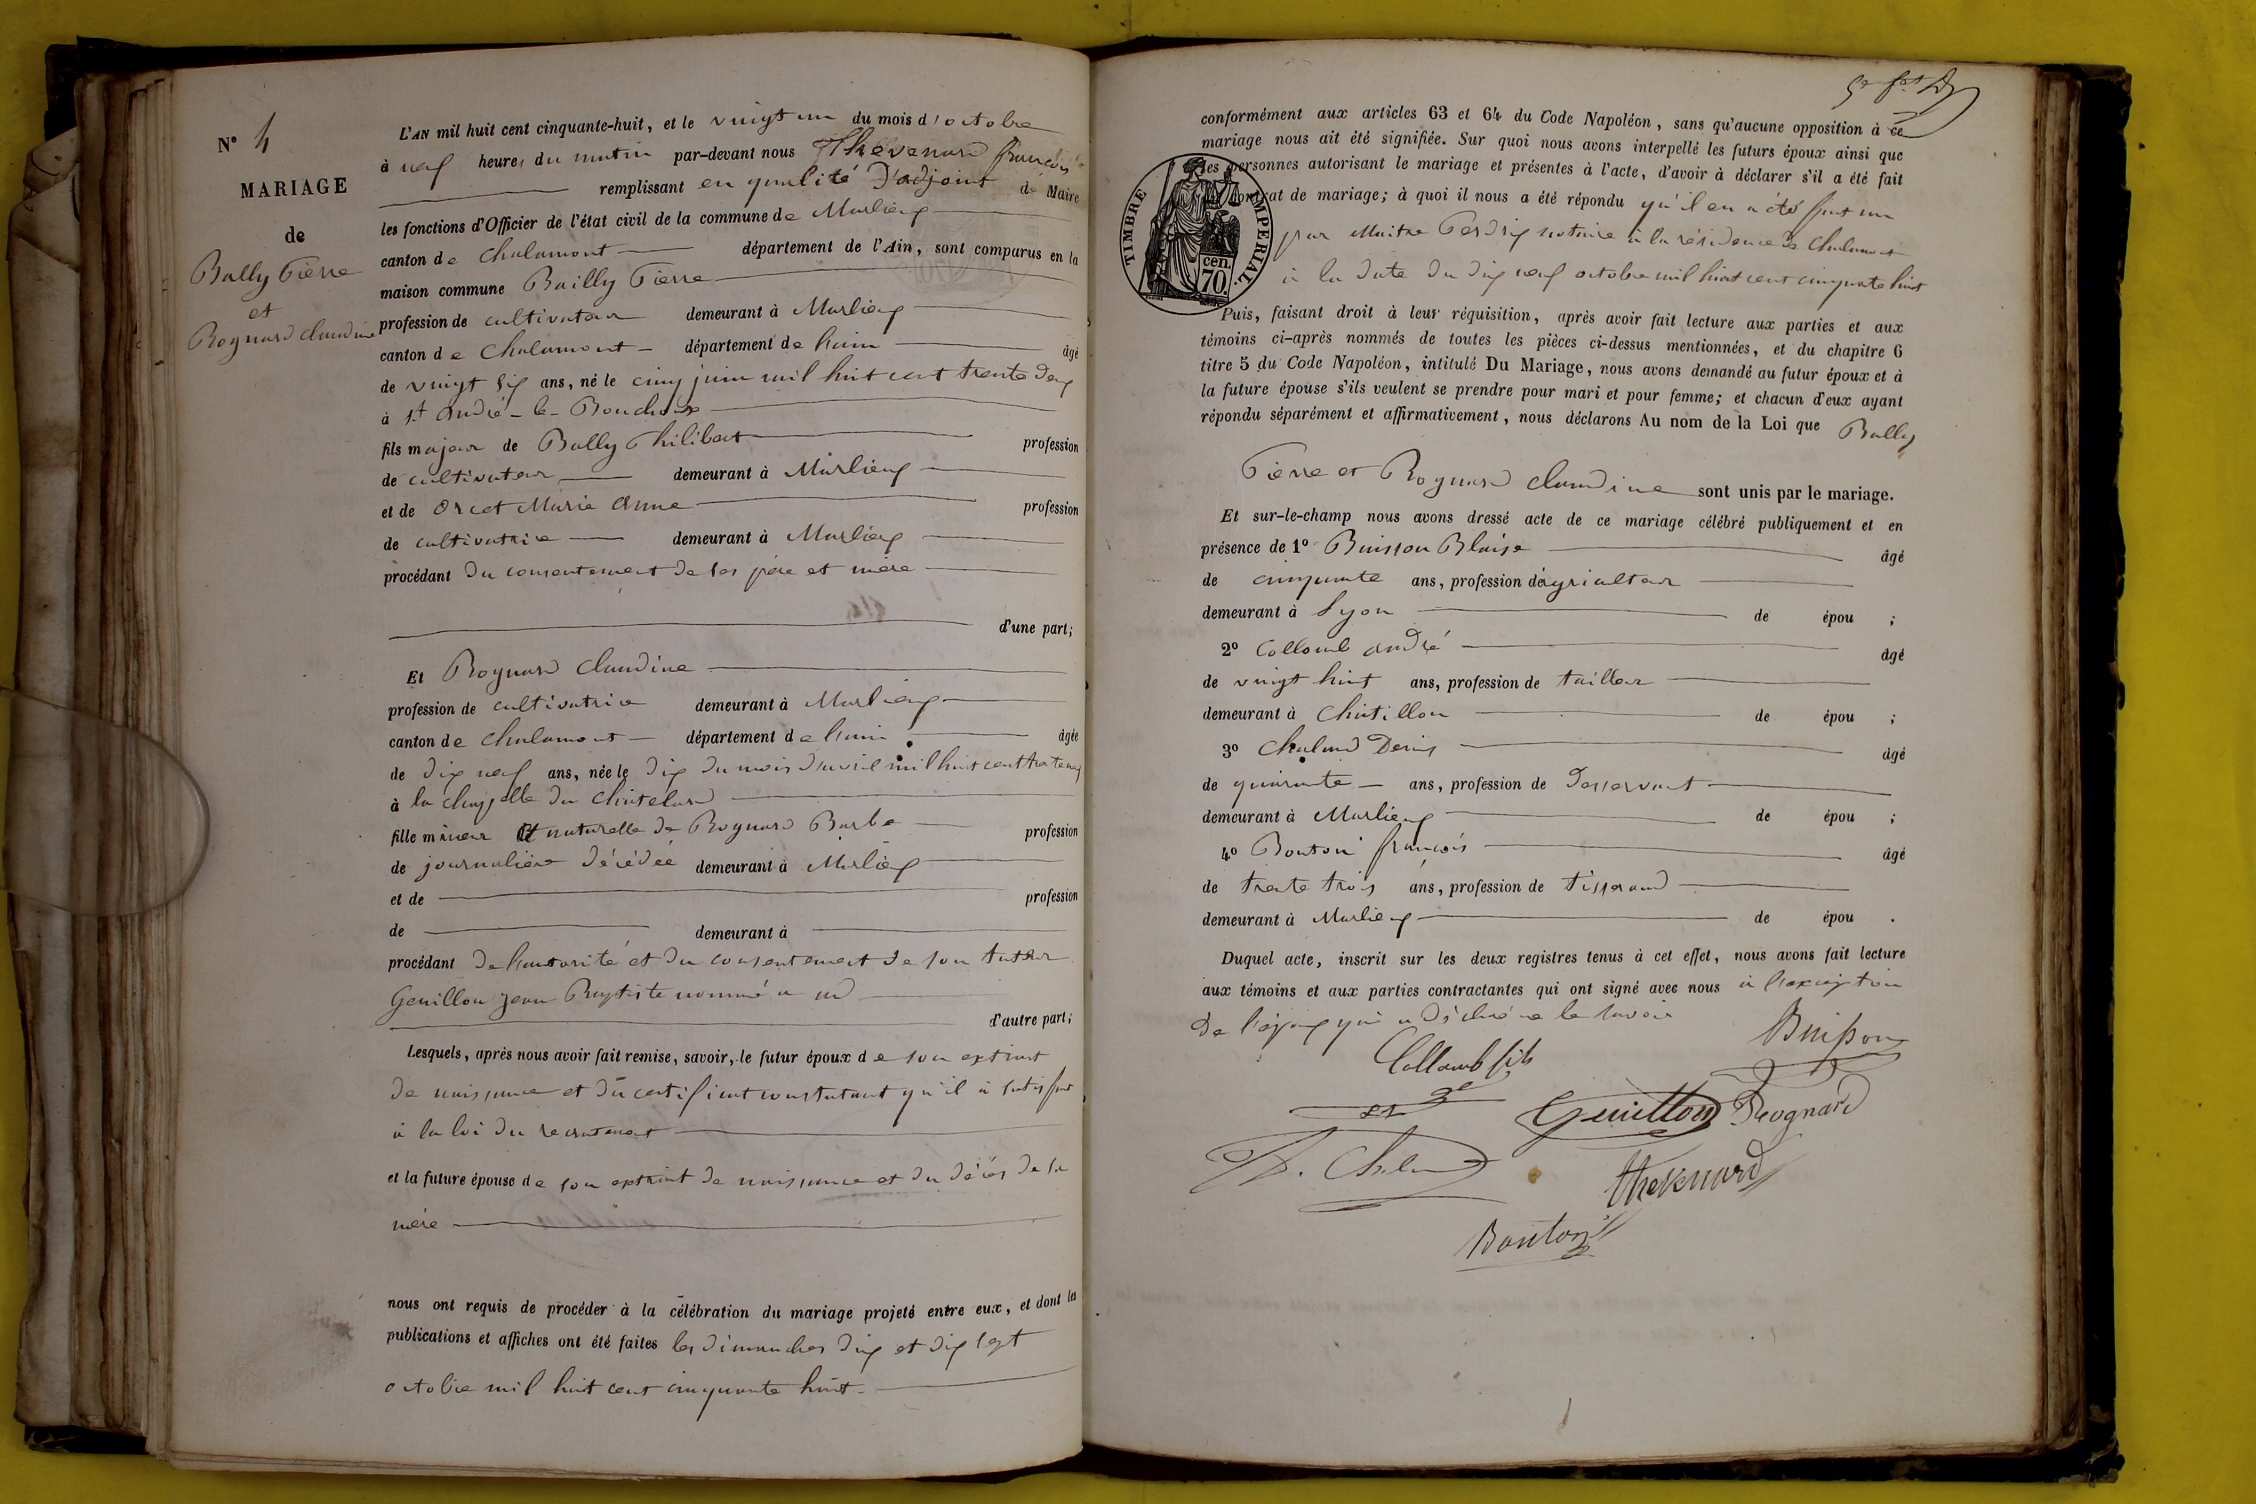 N° 4
MARIAGE
de
Bally Pierre
et
Rognard claudine
L'AN mil huit cent cinquante-huit, et le vingt un du mois d'octobre
à neuf heures du matin par-devant nous Thévenard françois
remplissant en qualité d'adjoint de Maire
les fonctions d'Officier de l'état civil de la commune de Marlieux
canton de Chalamont département de l'Ain, sont comparus en la
maison commune Bailly Pierre
profession de cultivateur demeurant à Marlieux
canton de Chalamont département de l'ain âgé
de vingt six ans, né le cinq juin mil huit cent trente deux
à st andré-le-Bouchoux
fils majeur de Bally Philibert profession
de cultivateur demeurant à Marlieux
et de Orcet Marie Anne profession
de cultivatrice demeurant à Marlieux
procédant du consentement de ses père et mère
d'une part;
Et Rognard claudine
profession de cultivatrice demeurant à Marlieux
canton de Chalamont département de l'ain âgée
de dix neuf ans, née le dix du mois d'avril mil huit cent trente neuf
à la chapelle du châtelard
fille mineur et naturelle de Rognard Barbe profession
de journalière décédée demeurant à Marlieux
et de profession
de demeurant à
procédant de l'autorité et du consentement de son tuteur
Genillon jean Baptiste nommé
d'autre part;
Lesquels, après nous avoir fait remise, savoir, le futur époux de son extrait
de naissance et du certificat constatant qu'il a satisfait
à la loi du recrutement
et la future épouse de son extrait de naissance et du décès de sa
mère
nous ont requis de procéder à la célébration du mariage projeté entre eux, et dont les
publications et affiches ont été faites les dimanches dix et dix sept
octobre mil huit cent cinquante huit
conformément aux articles 63 et 64 du Code Napoléon, sans qu'aucune opposition à ce
mariage nous ait été signifiée. Sur quoi nous avons interpellé les futurs époux ainsi que
les personnes autorisant le mariage et présentes à l'acte, d'avoir à déclarer s'il a été fait
contrat de mariage; à quoi il nous a été répondu qu'il en a été fait un
par Maitre Perdrix notaire à la résidence de Chalamont
à la date du dix neuf octobre mil huit cent cinquante huit
TIMBRE IMPERIAL
cen.
70.
Puis, faisant droit à leur réquisition, après avoir fait lecture aux parties et aux
témoins ci-après nommés de toutes les pièces ci-dessus mentionnées, et du chapitre 6
titre 5 du Code Napoléon, intitulé Du Mariage, nous avons demandé au futur époux et à
la future épouse s'ils veulent se prendre pour mari et pour femme; et chacun d'eux ayant
répondu séparément et affirmativement, nous déclarons Au nom de la Loi que Bally
Pierre et Rognard claudine sont unis par le mariage.
Et sur-le-champ nous avons dressé acte de ce mariage célébré publiquement et en
présence de 1° Buisson Blaise âgé
de cinquante ans, profession de agriculteur
demeurant à Lyon de épou ;
2° Collomb andré âgé
de vingt huit ans, profession de tailleur
demeurant à Châtillon de épou ;
3° Chaland Denis âgé
de quarante ans, profession de desservant
demeurant à Marlieux de épou ;
4° Bouton françois âgé
de trente trois ans, profession de tisserand
demeurant à Marlieux de épou .
Duquel acte, inscrit sur les deux registres tenus à cet effet, nous avons fait lecture
aux témoins et aux parties contractantes qui ont signé avec nous à l'exception
de l'époux qui a déclaré ne le savoir
Buisson
Collomb fils
Genillon Rognard
D. Chaland
thevenard
Bouton